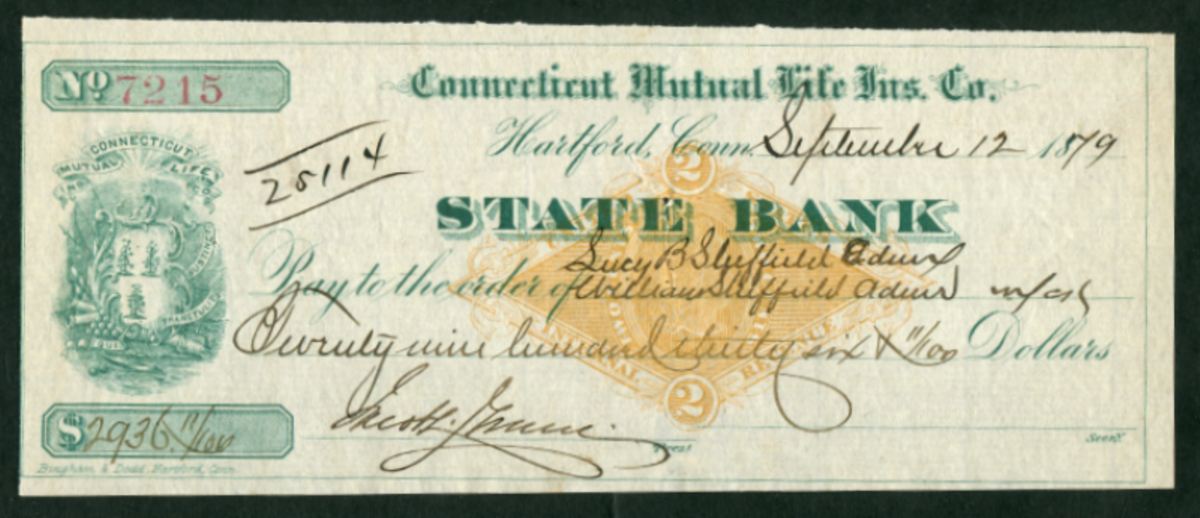 No 7215
Connecticut Mutual Life Ins. Co.
Hartford, Conn. September 12 1879
25114
CONNECTICUT
MUTUAL LIFE
STATE BANK
2
Lucy B Sheffield Admx
Pay to the order of William Sheffield Admr
Twenty nine hundred thirty six & 11/100 Dollars
INTERNAL REVENUE
2
$2936 11/100
Jacob L. Greene
Prest
Secy.
Bingham & Dodd, Hartford, Conn.